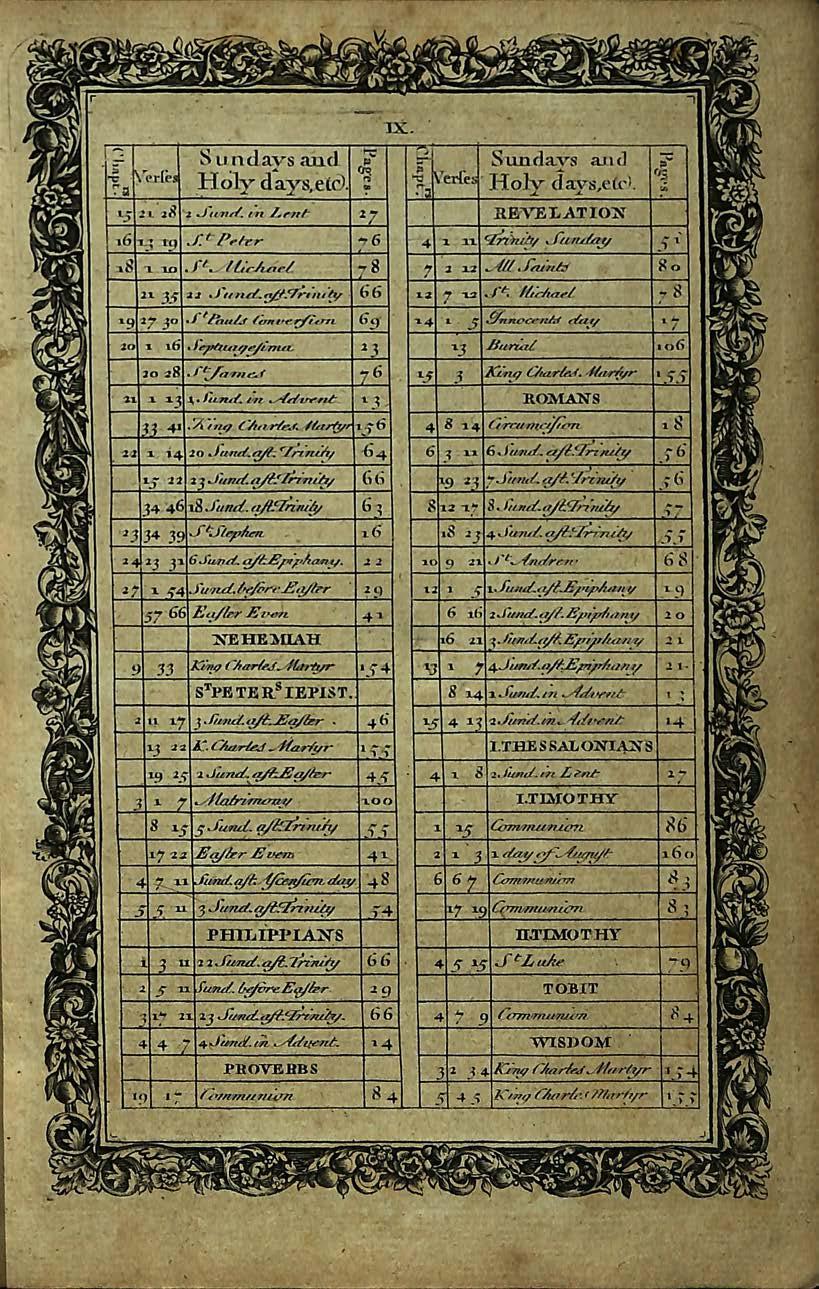 IX.
Chapt.rs Verſes Sundays and Holy days, etc). Pages.
15 21 28 2 Sund. in Lent 27
16 13 19 S.t Peter 76
18 1 10 S.t Michael 78
21 35 22 Sund. aſt. Trinity 66
19 27 30 S.t Pauls Converſion 69
20 1 16 Septuageſima 23
20 28 S.t James 76
21 1 13 1. Sund. in Advent 13
33 41 King Charles Martyr 156
22 1 14 20 Sund. aſt. Trinity 64
15 22 23 Sund. aſt. Trinity 66
34 46 18 Sund. aſt. Trinity 63
23 34 39 S.t Stephen 16
24 23 31 6 Sund. aſt. Epiphany. 22
27 1 54 Sund. before Eaſter 29
57 66 Eaſter Even 41
NEHEMIAH
9 33 King Charles Martyr 154
ST PETERS I EPIST.
2 11 17 3 Sund. aſt. Eaſter 46
13 22 K. Charles Martyr 155
19 25 2 Sund. aſt. Eaſter 45
3 1 7 Matrimony 100
8 15 5 Sund. aſt. Trinity 55
17 22 Eaſter Even 41
4 7 11 Sund. aſt. Aſcenſion day 48
5 5 11 3 Sund. aſt. Trinity 54
PHILIPPIANS
1 3 11 22 Sund. aſt. Trinity 66
2 5 11 Sund. before Eaſter 29
3 17 21 23 Sund. aſt. Trinity. 66
4 4 7 4 Sund. in Advent. 14
PROVERBS
19 17 Communion 84
Chapt.rs Verſes Sundays and Holy days, etc). Pages.
REVELATION
4 1 11 Trinity Sunday 51
7 2 12 All Saints 80
12 7 12 S.t Michael 78
14 1 5 Innocents day 17
13 Burial 106
15 3 King Charles. Martyr 155
ROMANS
4 8 14 Circumciſion 18
6 3 11 6 Sund. aſt. Trinity 56
19 23 7 Sund. aſt. Trinity 56
8 12 17 8 Sund. aſt. Trinity 57
18 23 4 Sund. aſt. Trinity 55
10 9 21 S.t Andrew 68
12 1 5 1 Sund. aſt. Epiphany 19
6 16 2 Sund. aſt. Epiphany 20
16 21 3 Sund. aſt. Epiphany 21
13 1 7 4 Sund. aſt. Epiphany 21
8 14 1 Sund. in Advent 13
15 4 13 2 Sund. in Advent 14
I. THESSALONIANS
4 1 8 2 Sund. in Lent 27
I. TIMOTHY
1 15 Communion 86
2 1 3 1 day of Auguſt 160
6 6 7 Communion 83
17 19 Communion 83
II. TIMOTHY
4 5 15 S.t Luke 79
TOBIT
4 7 9 Communion 84
WISDOM
3 2 3 4 King Charles Martyr 154
5 4 5 King Charles Martyr 155